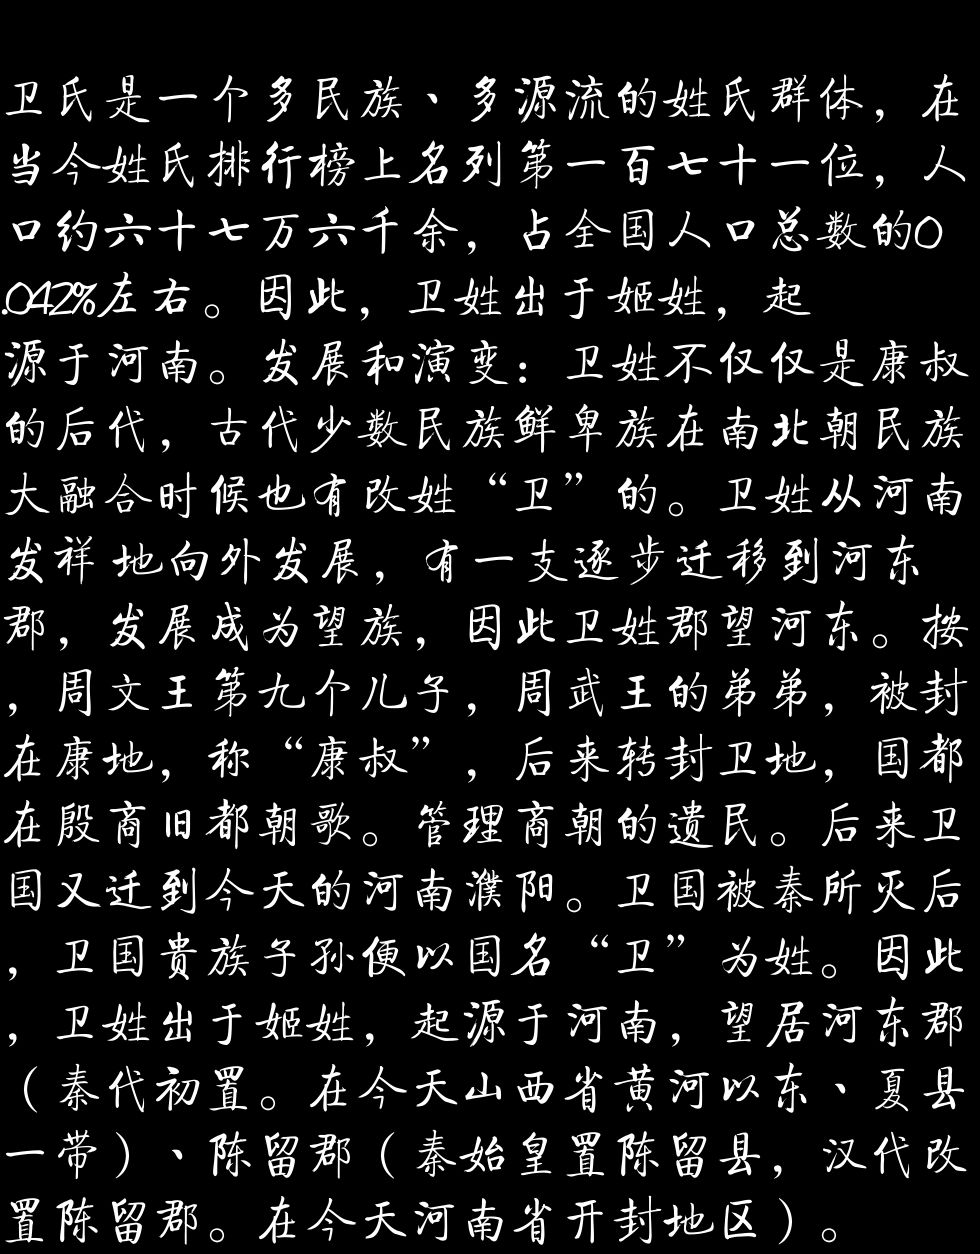 卫氏是一个多民族、多源流的姓氏群体，在
当今姓氏排行榜上名列第一百七十一位，人
口约六十七万六千余，占全国人口总数的0
.042%左右。因此，卫姓出于姬姓，起
源于河南。发展和演变：卫姓不仅仅是康叔
的后代，古代少数民族鲜卑族在南北朝民族
大融合时候也有改姓“卫”的。卫姓从河南
发祥地向外发展，有一支逐步迁移到河东
郡，发展成为望族，因此卫姓郡望河东。按
，周文王第九个儿子，周武王的弟弟，被封
在康地，称“康叔”，后来转封卫地，国都
在殷商旧都朝歌。管理商朝的遗民。后来卫
国又迁到今天的河南濮阳。卫国被秦所灭后
，卫国贵族子孙便以国名“卫”为姓。因此
，卫姓出于姬姓，起源于河南，望居河东郡
（秦代初置。在今天山西省黄河以东、夏县
一带）、陈留郡（秦始皇置陈留县，汉代改
置陈留郡。在今天河南省开封地区）。